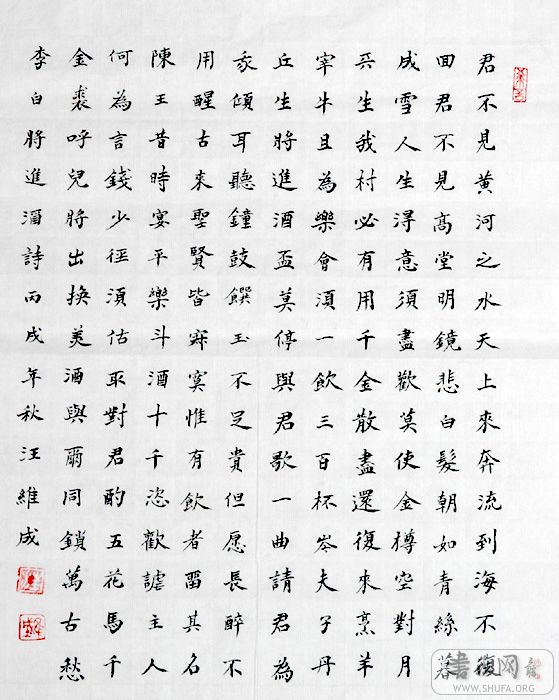 君不見黃河之水天上來奔流到海不復
囬君不見高堂明鏡悲白髮朝如青絲暮
成雪人生淂意須盡歡莫使金樽空對月
兲生我村必有用千金散盡還復來烹羊
宰牛且為樂會須一飲三百杯岑夫子丹
丘生將進酒盃莫停與君歌一曲請君為
我傾耳聽鐘鼓饌玉不足貴但愿長醉不
用醒古來聖賢皆寂寞惟有飲者留其名
陳王昔時宴平樂斗酒十千恣歡謔主人
何為言錢少徑須估取對君酌五花馬千
金裘呼兒將出換美酒與爾同鎖萬古愁
李白將進酒詩丙戌年秋汪維成
WWW.SHUFA.ORG